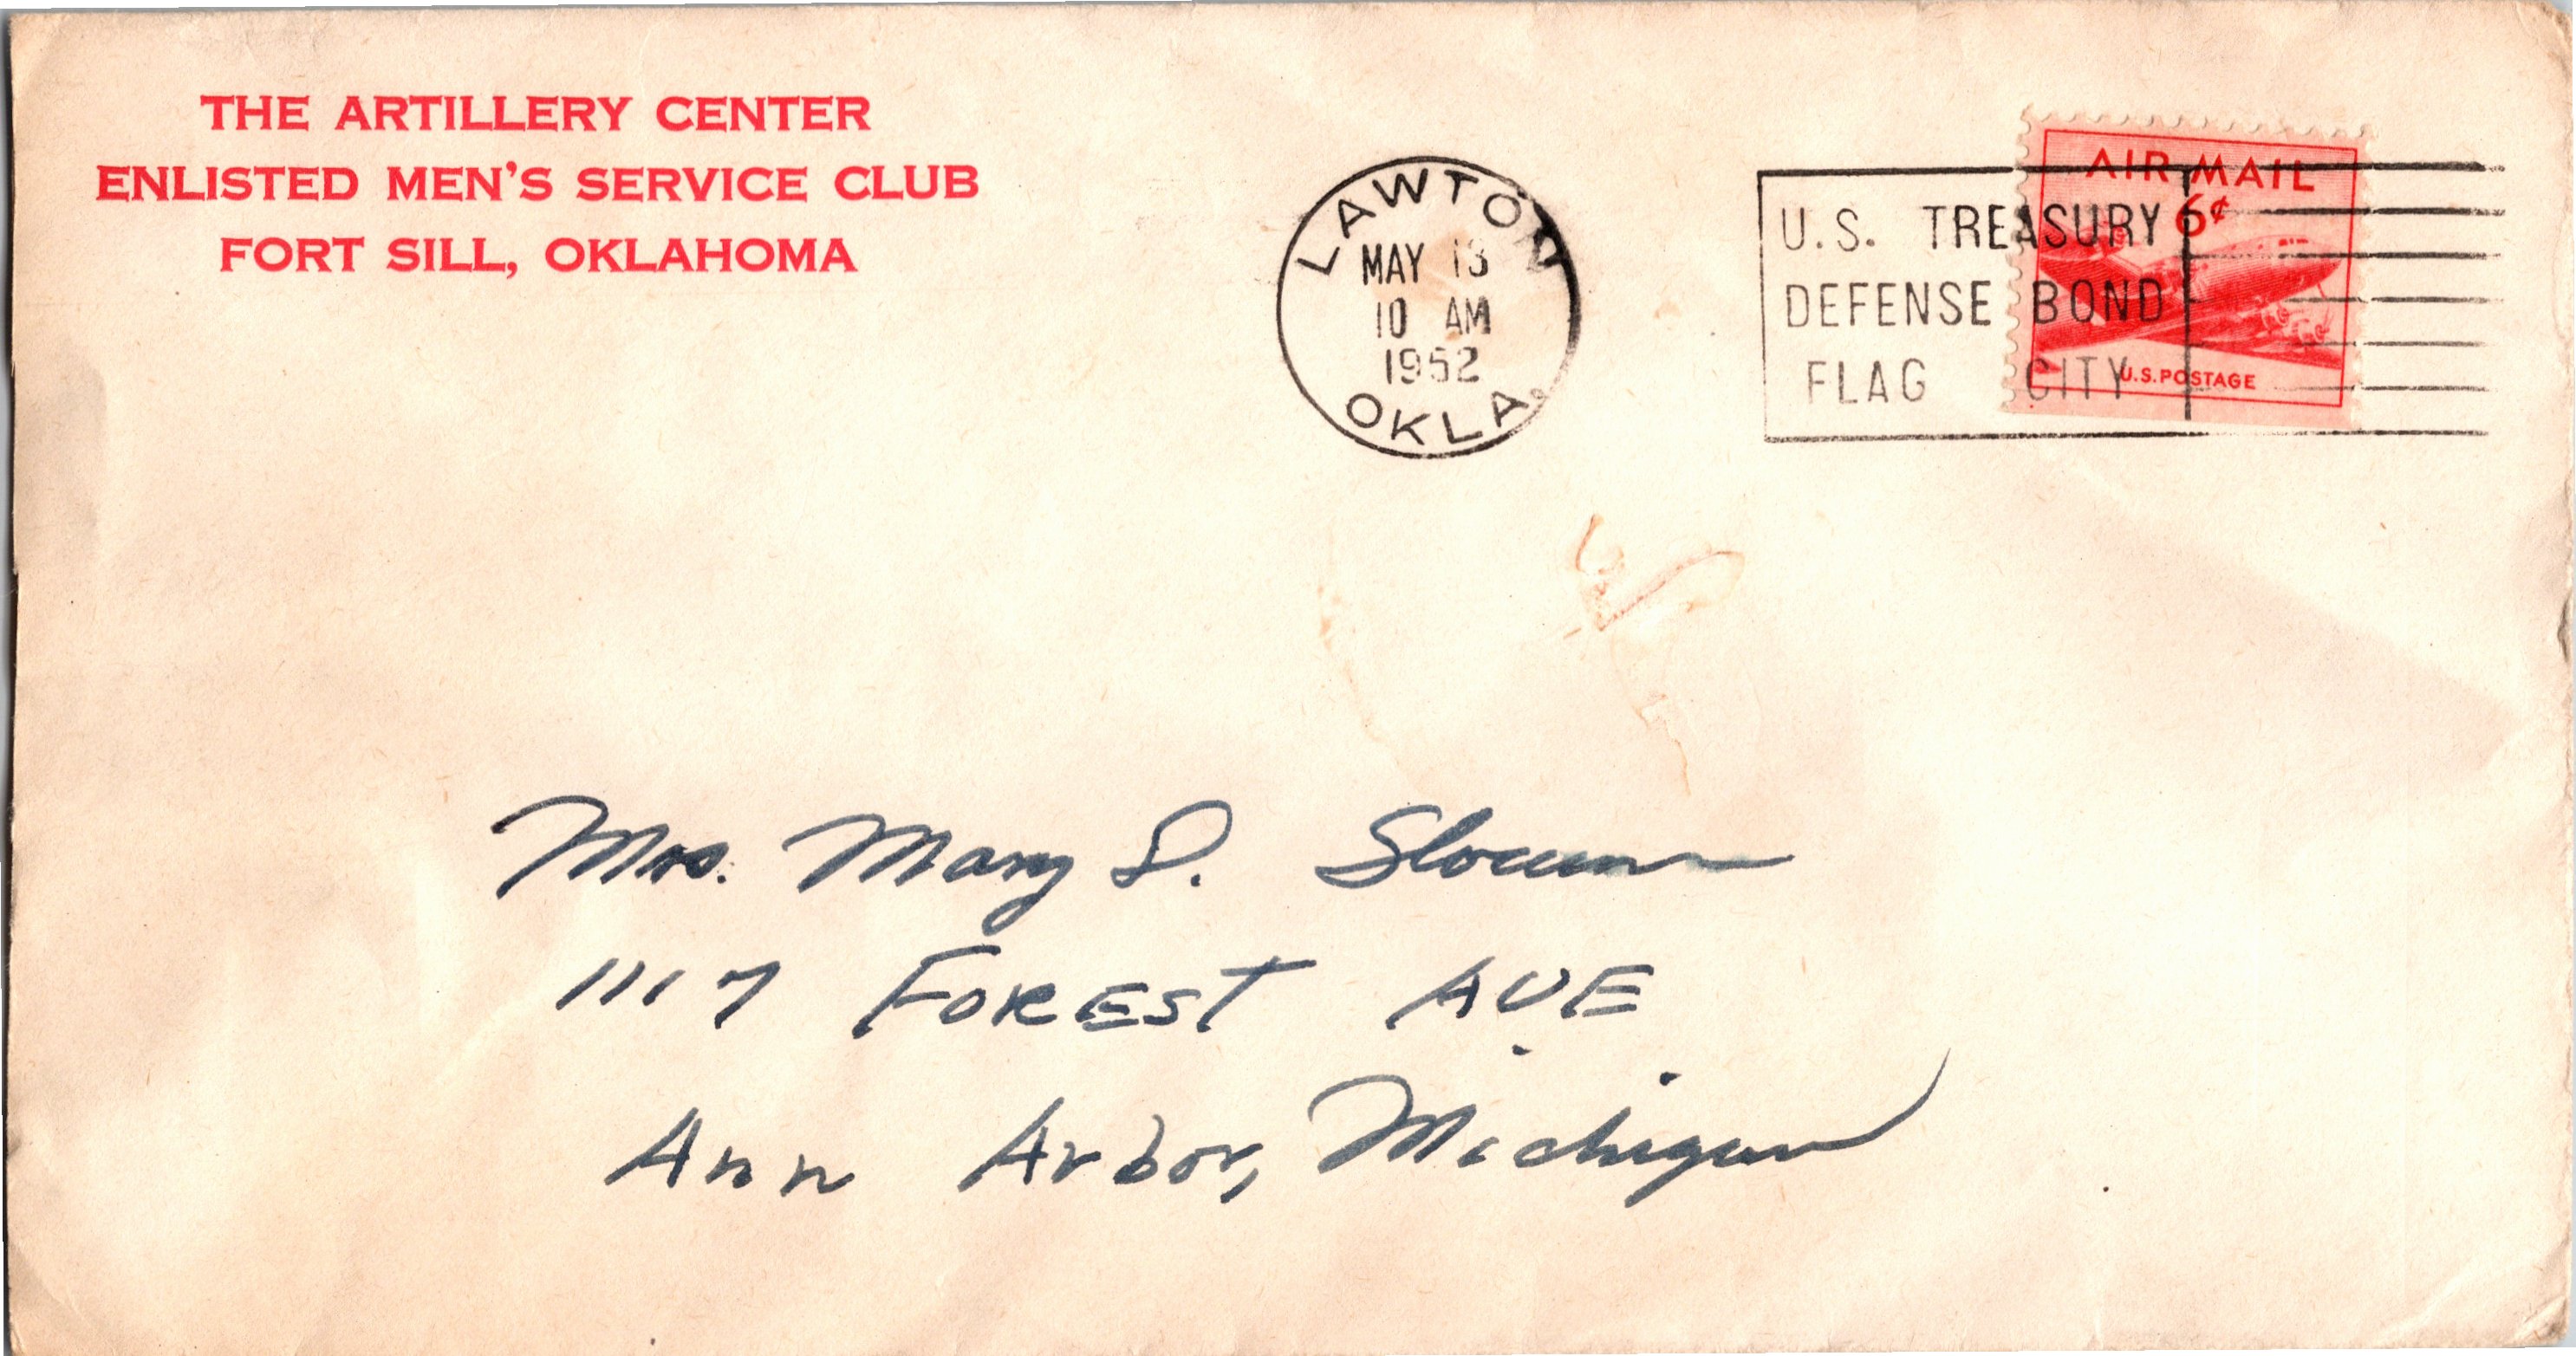 THE ARTILLERY CENTER
ENLISTED MEN'S SERVICE CLUB
FORT SILL, OKLAHOMA
LAWTON
MAY 13
10 AM
1952
OKLA.
U.S. TREASURY
DEFENSE BOND
FLAG CITY
AIR MAIL
6¢
U.S. POSTAGE
Mrs. Mary S. Slocum
1117 FOREST AVE
Ann Arbor, Michigan